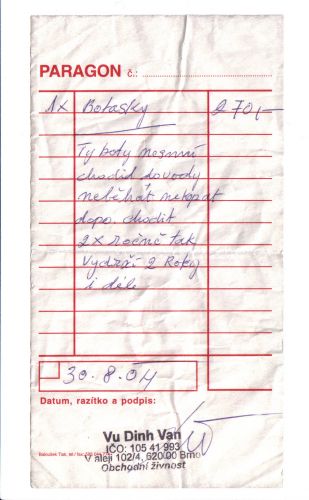 PARAGON č.:
1x Botasky 270,-
Ty boty nesmí
chodid do vody
neběhat nekopat
dopo. chodit
2x ročně tak
Vydrží 2 Roky
i déle
30.8.04
Datum, razítko a podpis:
Vu Dinh Van
IČO: 105 41 993
V aleji 102/4, 620 00 Brno
Obchodní živnost